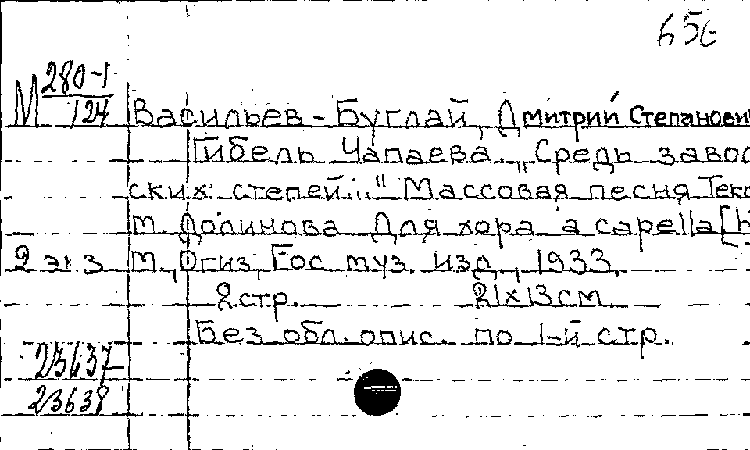 М 280-1
124
Васильев-Буглай, Дмитрий Степанович
Гибель Чапаева. „Средь
ских степей..." Массовая песня
М. Долинова Для хора a capella
2 экз М., Огиз, Гос. муз. изд., 1933.
2 стр. 21х13 см
Без обл. опис. по 1-й стр.
23637
23638